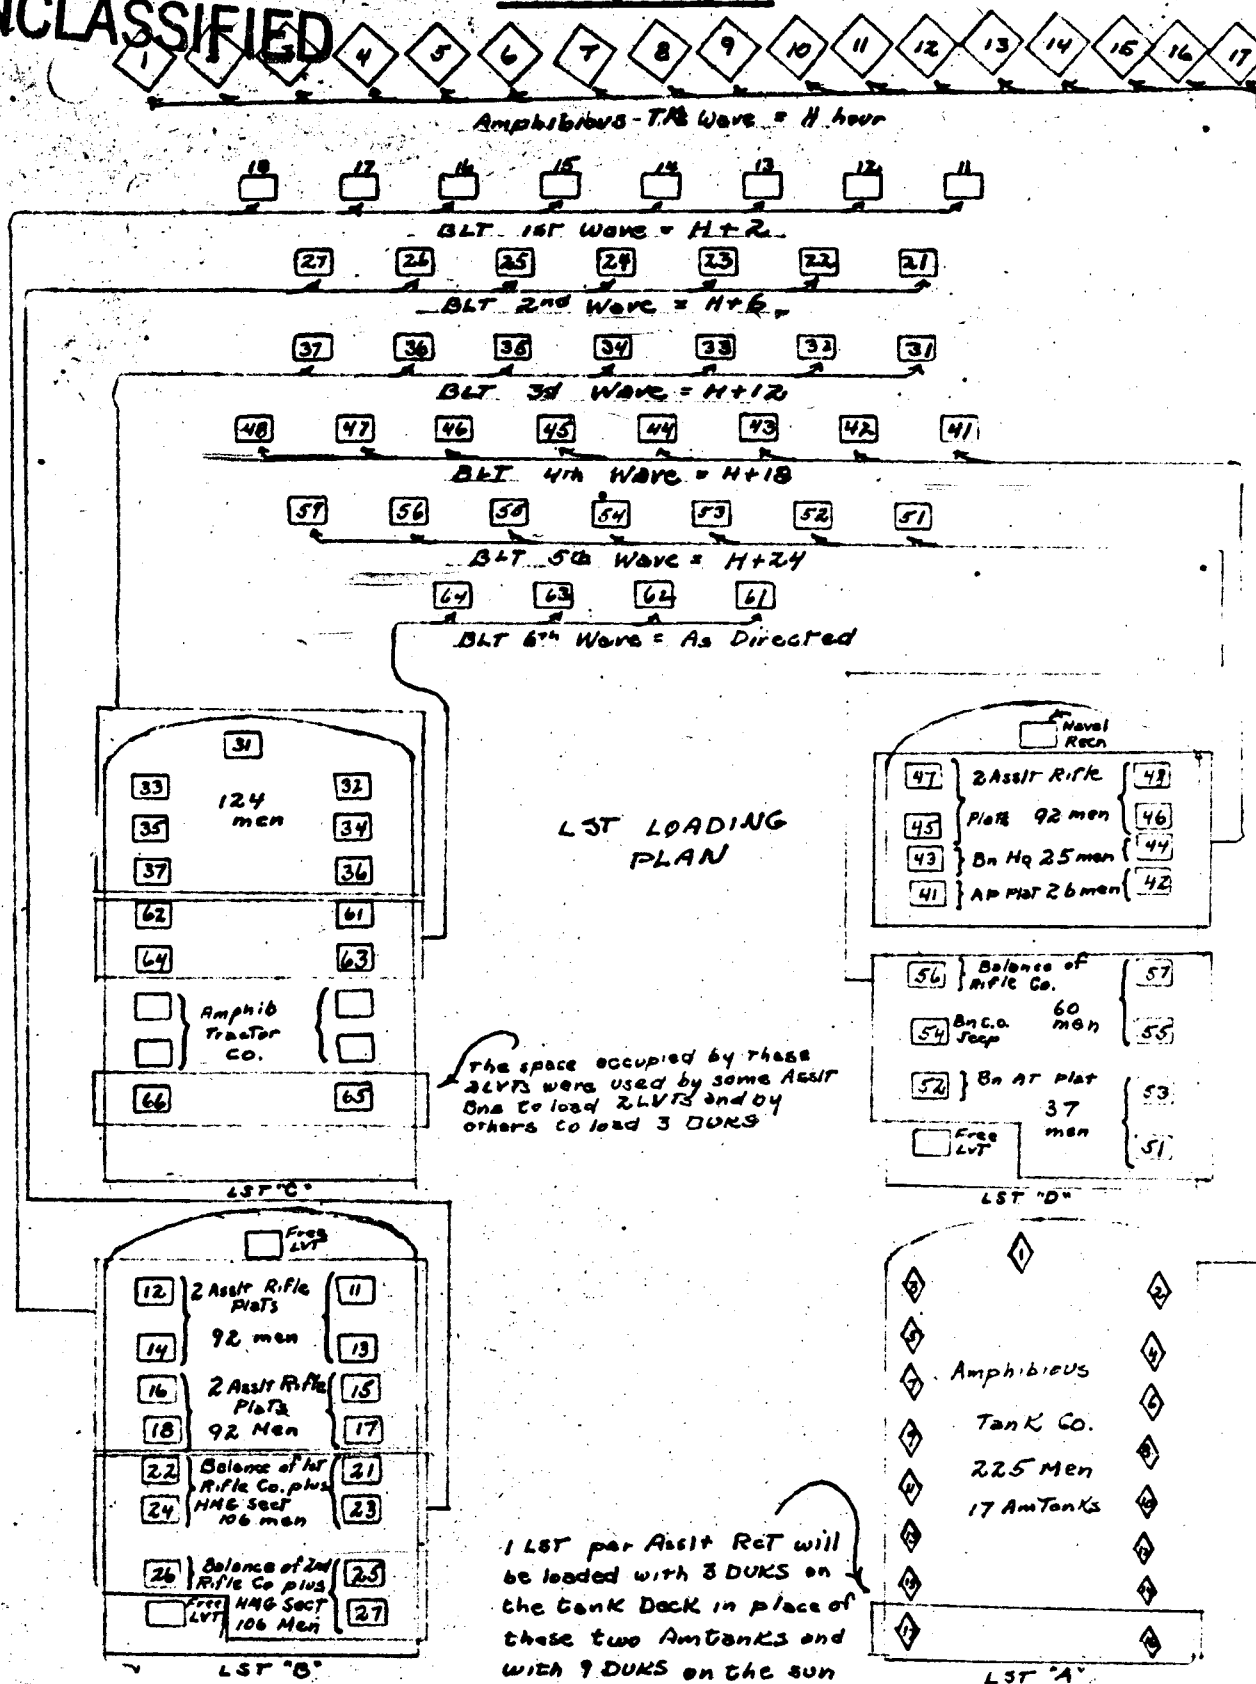 NCLASSIFIED
1 3 4 5 6 7 8 9 10 11 12 13 14 15 16 17
Amphibious-TKs Wave = H hour
18 17 16 15 14 13 12 11
BLT 1st Wave = H+2
27 26 25 24 23 22 21
BLT 2nd Wave = H+6
37 36 35 34 33 32 31
BLT 3d Wave = H+12
48 47 46 45 44 43 42 41
BLT 4th Wave = H+18
57 56 55 54 53 52 51
BLT 5th Wave = H+24
64 63 62 61
BLT 6th Wave = As Directed
LST LOADING
PLAN
31
33 32
124
men
35 34
37 36
62 61
64 63
Amphib
Tractor
Co.
66 65
LST "C"
The space occupied by these
2LVTs were used by some Asslt
Bns to load 2LVTs and by
others to load 3 DUKS
Naval
Recn
47 2 Asslt Rifle 48
45 Plats 92 men 46
43 Bn Hq 25 men 44
41 AP Plat 26 men 42
56 Balance of 57
Rifle Co.
60
men
54 Bn C.O. 55
Jeep
52 Bn AT Plat 53
37
men
Free
LVT
51
LST "D"
Free
LVT
12 2 Asslt Rifle 11
Plats
14 92 men 13
16 2 Asslt Rifle 15
Plats
18 92 Men 17
22 Balance of 1st 21
Rifle Co. plus
24 HMG Sect 23
106 men
26 Balance of 2nd 25
Rifle Co plus
Free
LVT
HMG Sect 27
106 Men
LST "B"
1 LST per Asslt RCT will
be loaded with 3 DUKS on
the tank Deck in place of
these two Amtanks and
with 9 DUKS on the sun
1
3 2
5 4
7 6
Amphibious
Tank Co.
9 8
225 Men
11 10
17 AmTanks
13 12
15 14
17 16
LST "A"